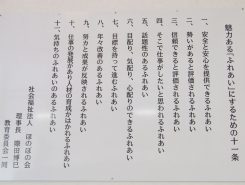 魅力ある「ふれあい」にするための十一条
一、安全と安心を提供できるふれあい
二、勢いがあると評価されるふれあい
三、信頼できると評価されるふれあい
四、そこで仕事がしたいと思われるふれあい
五、話題性のあるふれあい
六、目配り、気配り、心配りのできるふれあい
七、目標を持って進むふれあい
八、年々改善のあるふれあい
九、努力と成果が反映されるふれあい
十、仕事の発展があり人材の育成がはかれるふれあい
十一、気持ちのふれあいのあるふれあい
社会福祉法人 ほのぼの会
理事長
教育委員会一同